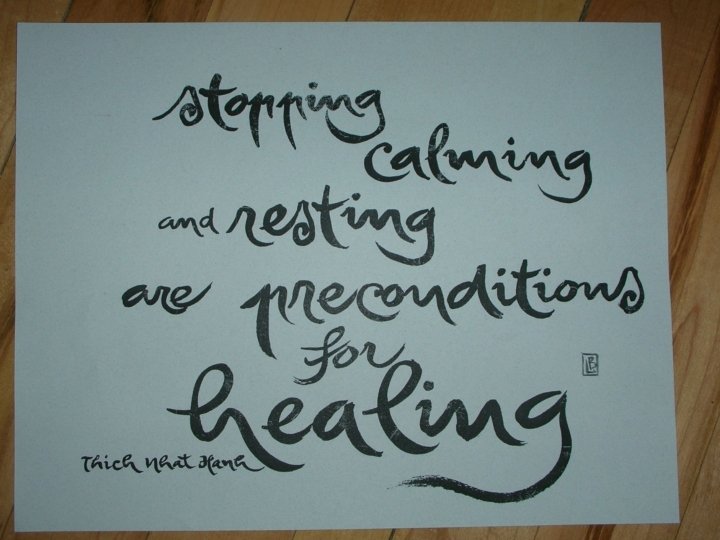 stopping
calming
and resting
are preconditions
for
healing
Thich Nhat Hanh